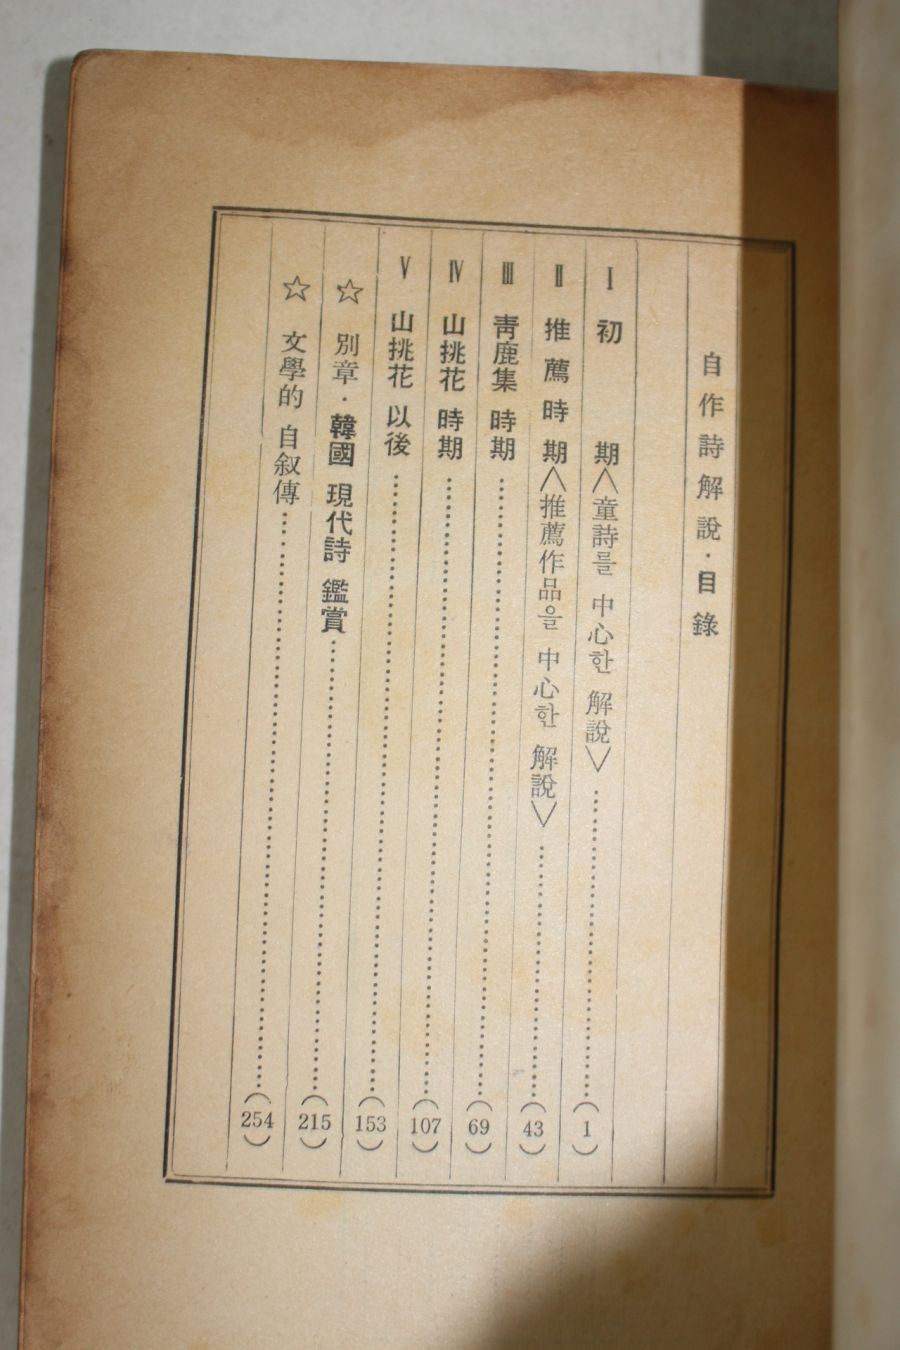 自作詩解說·目錄
Ⅰ 初 期<童詩를 中心한 解說>……(1)
Ⅱ 推薦時期<推薦作品을 中心한 解說>……(43)
Ⅲ 靑鹿集 時期……(69)
Ⅳ 山挑花 時期……(107)
Ⅴ 山挑花 以後……(153)
☆ 別章·韓國 現代詩 鑑賞……(215)
☆ 文學的 自叙傳……(254)